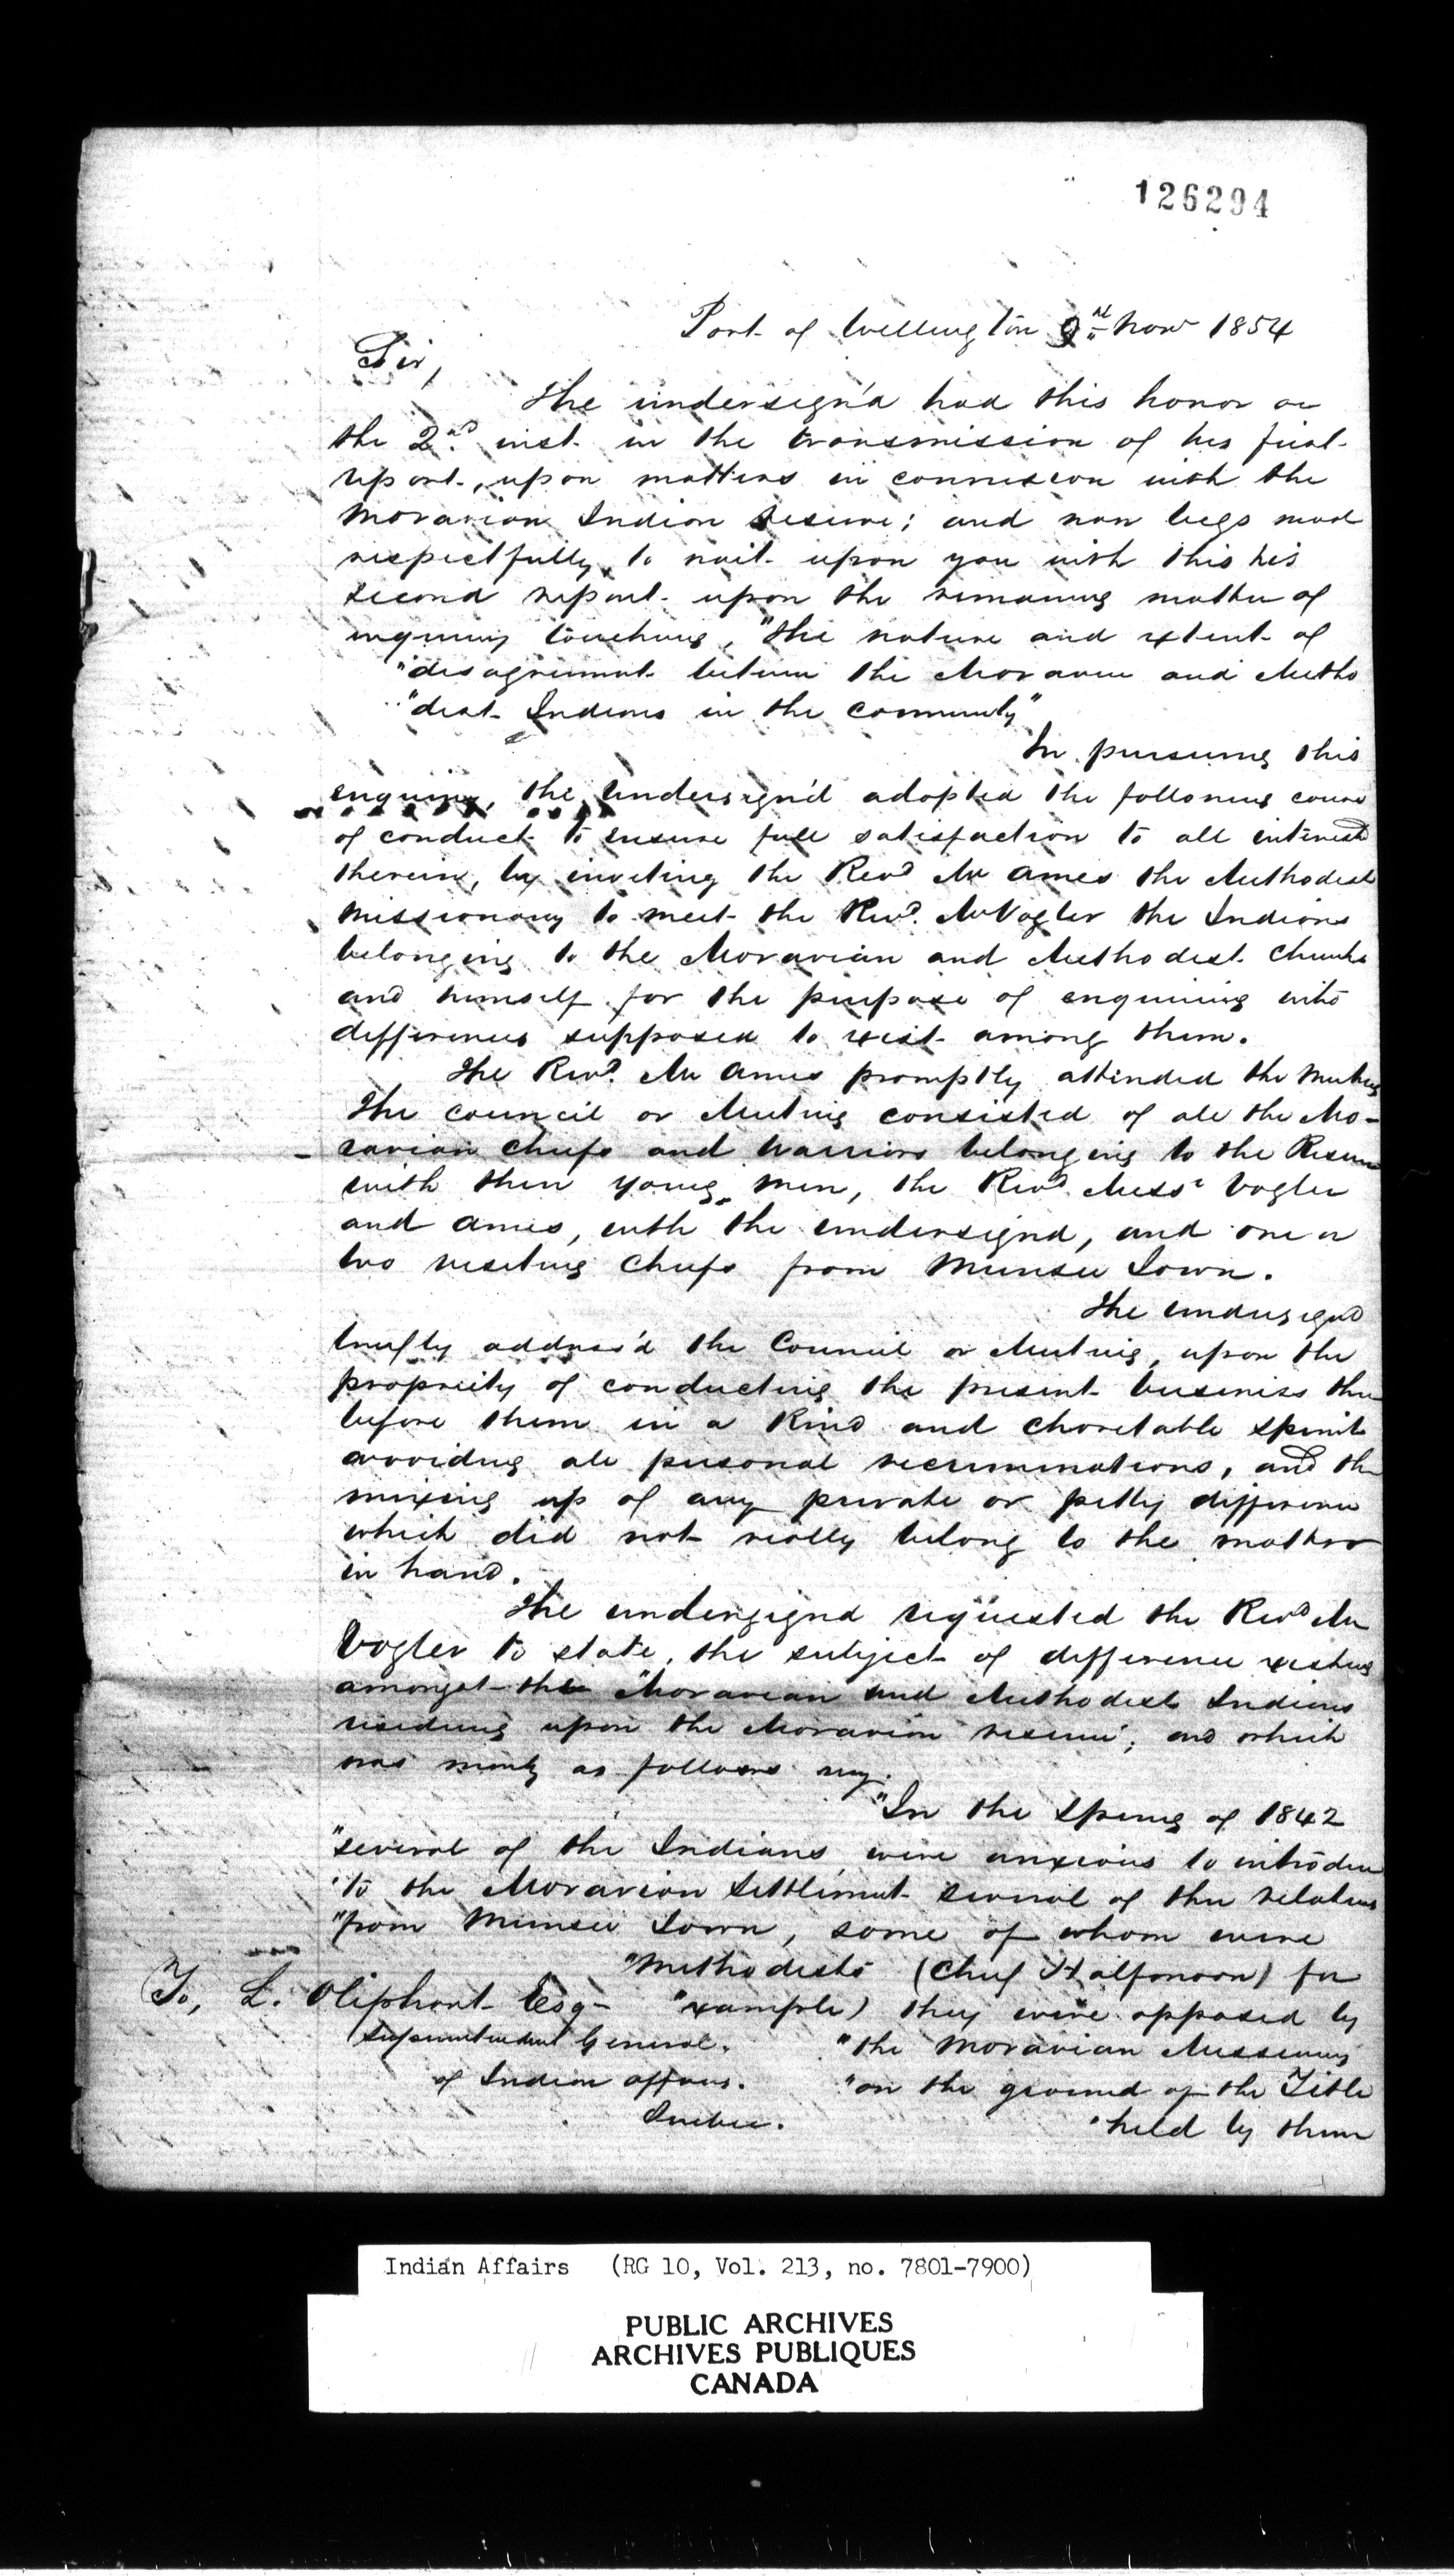 126294
Port of Wellington 9th Novr 1854
Sir,
The undersign'd had this honor on
the 2nd inst. in the transmission of his first
report, upon matters in connexion with the
Moravian Indian Reserve; and now begs most
respectfully to wait upon you with this his
second report upon the remaining matter of
inquiry touching, "the nature and extent of
"disagreement between the Moravian and Metho
"dist Indians in the community"
In pursuing this
enquiry, the undersign'd adopted the following course
of conduct to ensure full satisfaction to all interested
therein, by inviting the Revd Mr Ames the Methodist
Missionary to meet the Revd. Mr Vogler the Indians
belonging to the Moravian and Methodist Church
and himself for the purpose of enquiring into
differences supposed to exist among them.
The Revd. Mr Ames promptly attended the meeting
The council or Meeting consisted of all the Mo-
ravian Chiefs and Warriors belonging to the Reserve
with their young men, the Revd Messrs Vogler
and Ames, with the undersignd, and one or
two visiting Chiefs from Munsee Town.
The undersignd
briefly address'd the Council or Meeting, upon the
propriety of conducting the present business then
before them in a kind and charitable spirit
avoiding all personal recriminations, and the
mixing up of any private or petty difference
which did not really belong to the matter
in hand.
The undersignd requested the Revd Mr
Vogler to state, the subject of difference existing
amongst the Moravian and Methodist Indians
residing upon the Moravian reserve; and which
was mainly as follows
"In the spring of 1842
"several of the Indians were anxious to introduce
"to the Moravian Settlement several of their relatives
"from Munsee Town, some of whom were
"Methodists (Chief Halfmoon) for
"example) they were opposed by
"the Moravian Missionary
"on the ground of the Title
"held by them
To, L. Oliphant Esq-
Superintendent General.
of Indian affairs.
Quebec.
Indian Affairs (RG 10, Vol. 213, no. 7801-7900)
PUBLIC ARCHIVES
ARCHIVES PUBLIQUES
CANADA